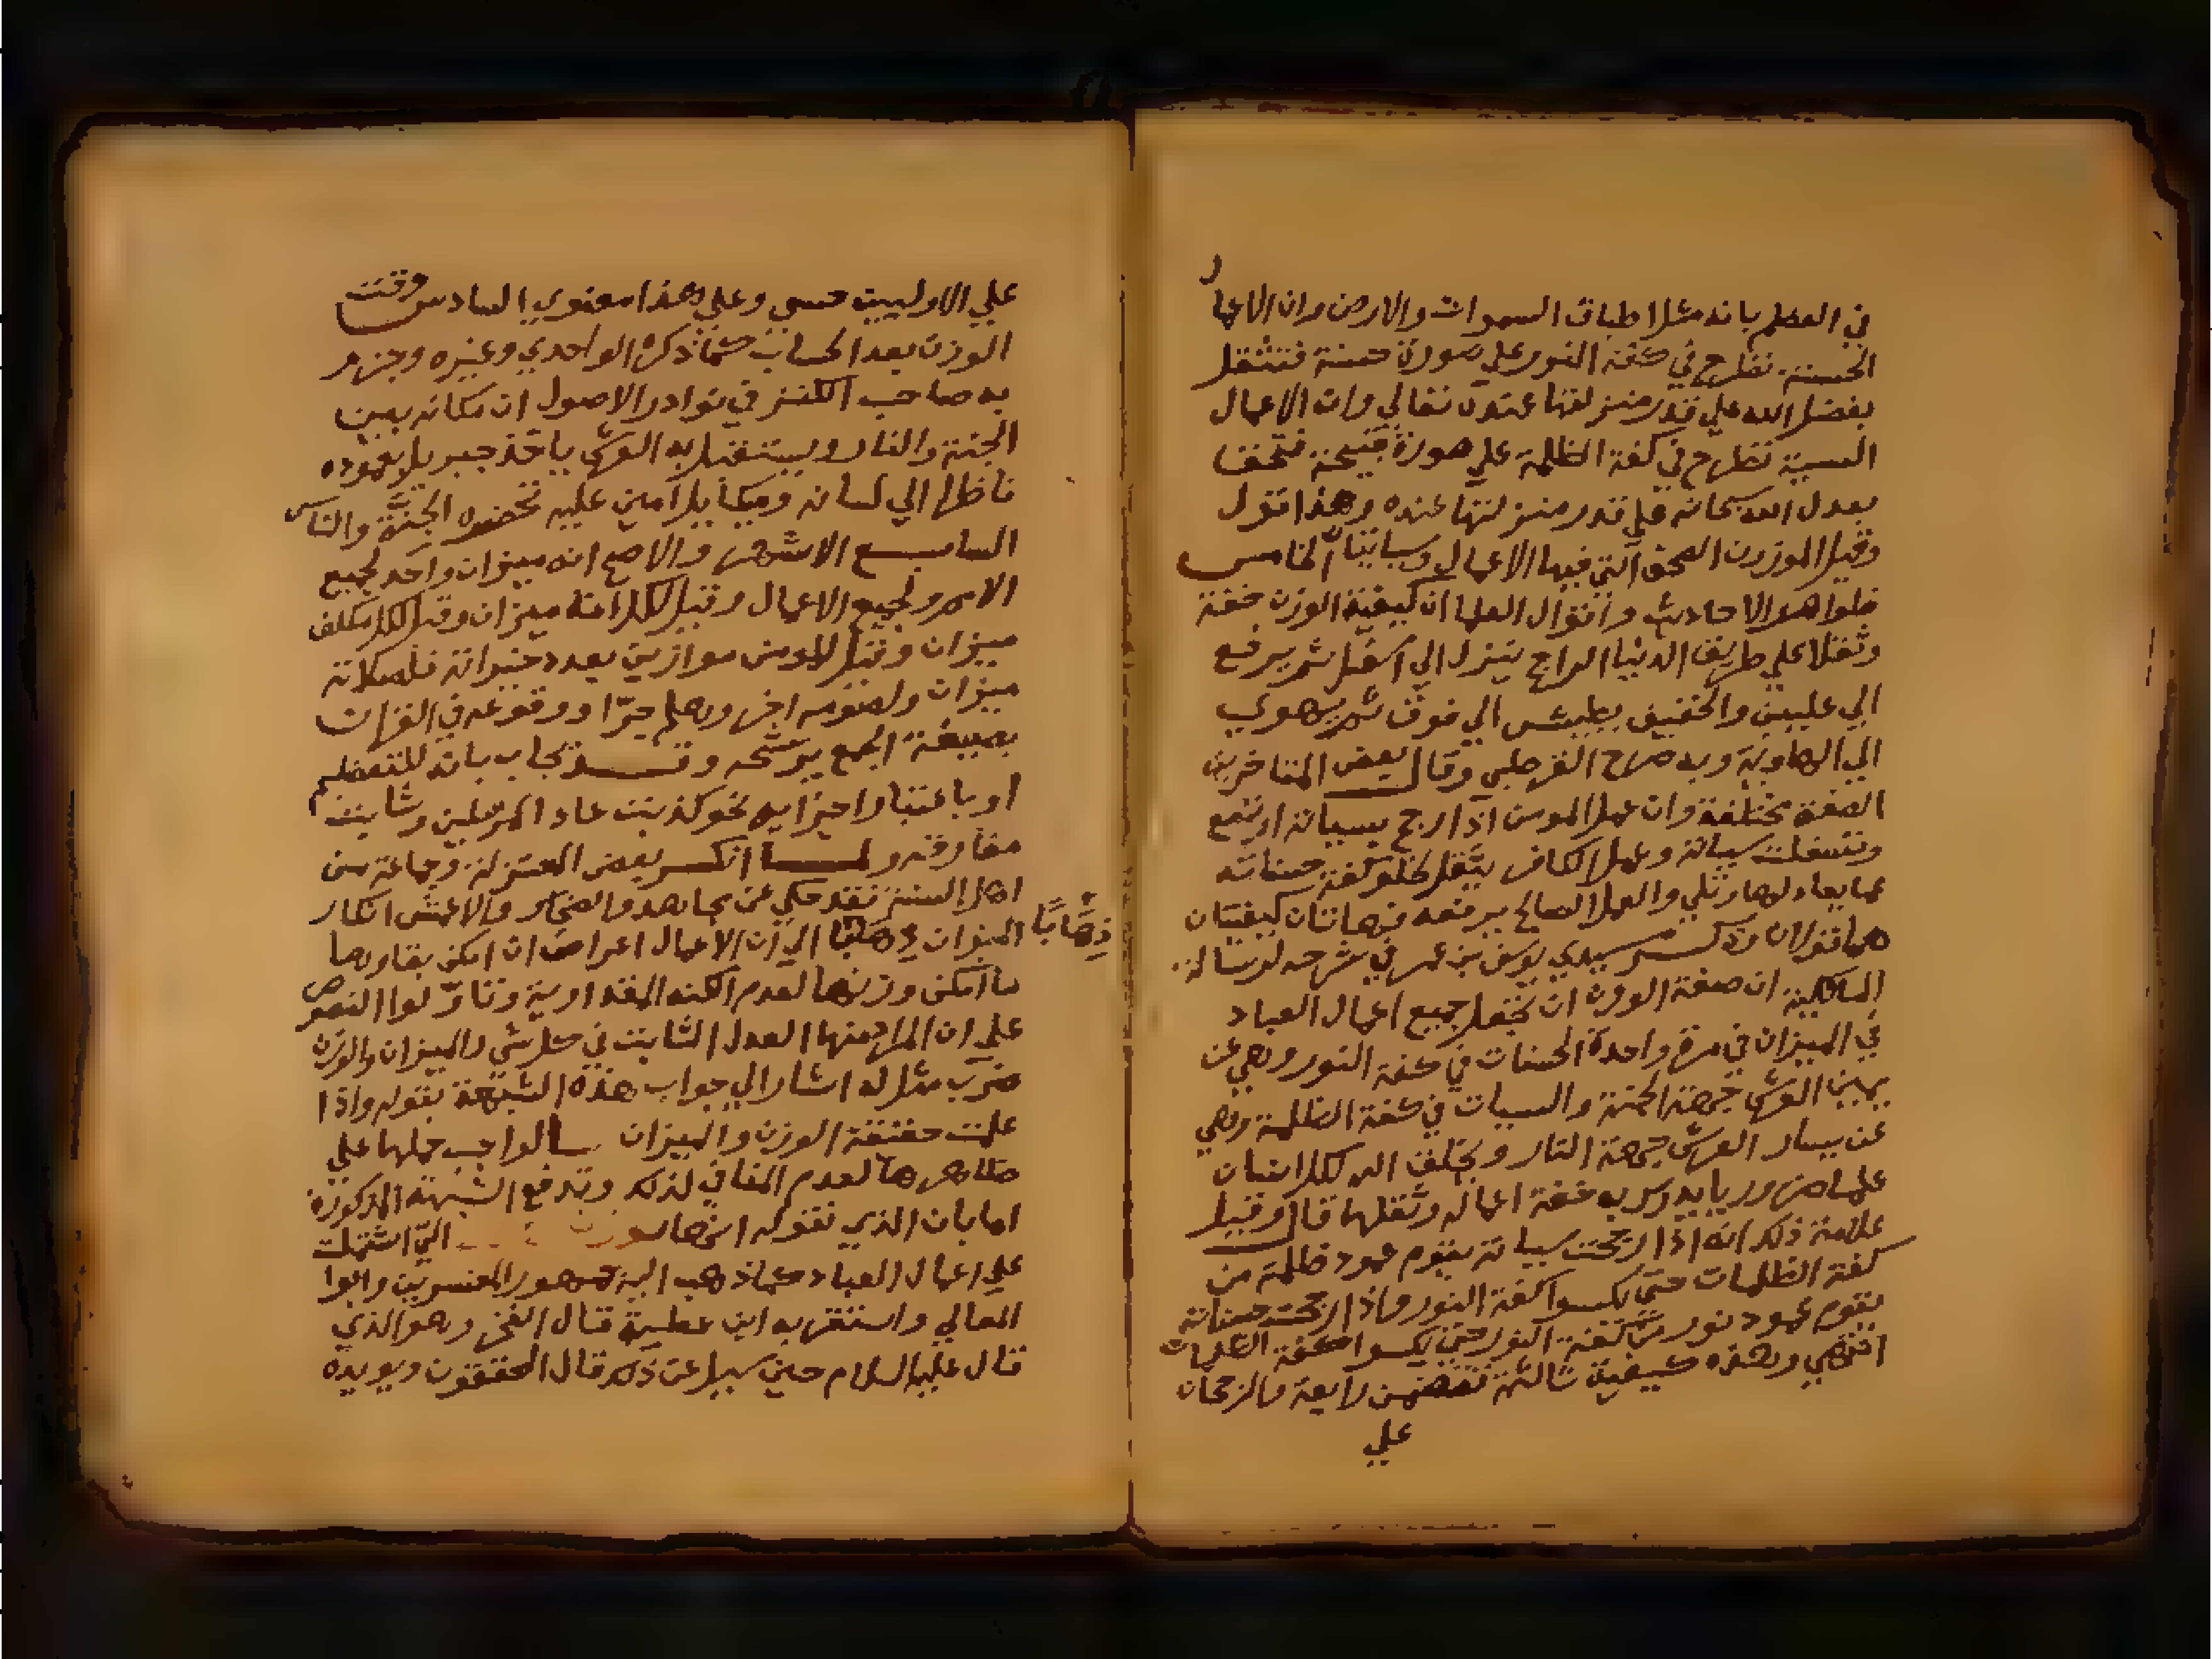 في العظم بانه مثل اطباق السموات والارض وان الاعمال
الحسنة تطرح في كفة النور علي صورة حسنة فتثقل
بفضل الله علي قدر منزلتها عنده تعالي وان الاعمال
السيية تطرح في كفة الظلمة علي صورة قبيحة فتخف
بعدل الله سبحانه علي قدر منزلتها عنده وهذا قول
وقيل الموزون الصحف التي فيها الاعمال وسياتي الخامس
ظواهر الاحاديث واقوال العلما ان كيفية الوزن خفة
وثقلا علي طريق الدنيا الراجح ينزل الي اسفل ثم يرفع
الي عليين والخفيف يطيش الي فوق ثم يهوي
الي الهاوية وبه صرح القرطبي وقال بعض المتاخرين
الصفة مختلفة وان عمل المومن اذا رجح بسياته ارتفع
وتسفلت سياته وعمل الكافر يثقل لخلو كفة حسناته
عما يعادلها وتلي والعمل الصالح يرفعه فهاتان كيفيتان
هما قولان وذكر سيدي يوسف بن عمر في شرحه لرسالة
المالكية ان صفة الوزن ان تجعل جميع اعمال العباد
في الميزان في مرة واحدة الحسنات في كفة النور وهي عن
يمين العرش جهة الجنة والسيات في كفة الظلمة وهي
عن يسار العرش جهة النار ويخلف الله لكل انسان
علما ضروريا يدرك به خفة اعماله وثقلها قال وقيل
علامة ذلك انه اذا رجحت سياته يقوم عمود ظلمة من
كفة الظلمات حتي يكسوا كفة النور واذا رجحت حسناته
يقوم عمود نور من كفة النور حتي يكسوا كفة الظلمات
انتهي وهذه كيفية ثالثة تتضمن رابعة فالرجحان
علي
علي الاوليين حسي وعلي هذا معنوي السادس وقت
الوزن بعد الحساب كما ذكره الواحدي وغيره وجزم
به صاحب الكنز في نوادر الاصول ان مكانه بين
الجنة والنار ويستقبل به العرش ياخذ جبريل بعموده
ناظرا الي لسانه وميكاييل امين عليه تحضره الجنة والناس
السابع الاشهر والاصح انه ميزان واحد لجميع
الامم ولجميع الاعمال وقيل لكل امة ميزان وقيل لكل مكلف
ميزان وقيل للمومن موازين بعدد خيراته فلصلاته
ميزان ولصومه اخر وهلم جرّا ووقوعه في القران
بصيغة الجمع يرشحه وقد يجاب بانه للتعظيم
او باعتبار اجزايه نحو كذبت عاد المرسلين وشابت
مفارقه ولما انكر بعض المعتزلة وجماعة من
اهل السنة فقد حكي عن مجاهد والضحاك والاعمش انكار
الميزان ذهابًا الي ان الاعمال اعراض ان امكن بقاوها
ذِهَابًا
ما امكن وزنها لعدم الكنه المقدارية وتاوّلوا النصوص
علي ان المراد منها العدل الثابت في كل شي والميزان والوزن
ضرب مثل له اشار الي جواب هذه الشبهة بقوله واذا
علمت حقيقة الوزن والميزان فالواجب حملها علي
ظاهرها لعدم المنافي لذلك وتدفع الشبهة المذكورة
اما بان الذي نقوله ... التي اشتملت
علي اعمال العباد كما ذهب اليه جمهور المفسرين وابوا
المعالي واستقر به ابن عطية قال الفخر وهو الذي
قال عليه السلام حين سيل عن ذلك قال المحققون ويويده